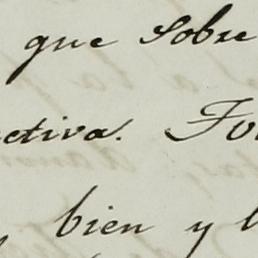 que sobre
ectiva. Fo
bien y l